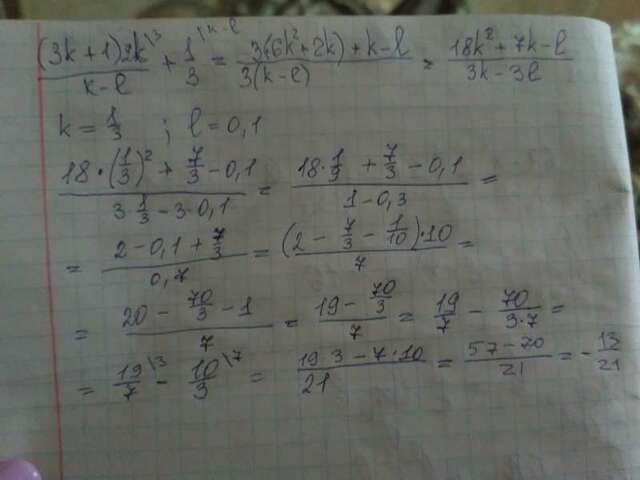 (3k+1)2k\3 / k-l + 1\k-l / 3 = 3(6k²+2k)+k-l / 3(k-l) = 18k²+7k-l / 3k-3l
k = 1/3 ; l = 0,1
18·(1/3)² + 7/3 - 0,1 / 3·1/3 - 3·0,1 = 18·1/9 + 7/3 - 0,1 / 1-0,3 =
= 2-0,1+7/3 / 0,7 = (2 - 7/3 - 1/10)·10 / 7 =
= 20 - 70/3 - 1 / 7 = 19 - 70/3 / 7 = 19/7 - 70/3·7 =
= 19\3 / 7 - 10\7 / 3 = 19·3-7·10 / 21 = 57-70 / 21 = -13/21